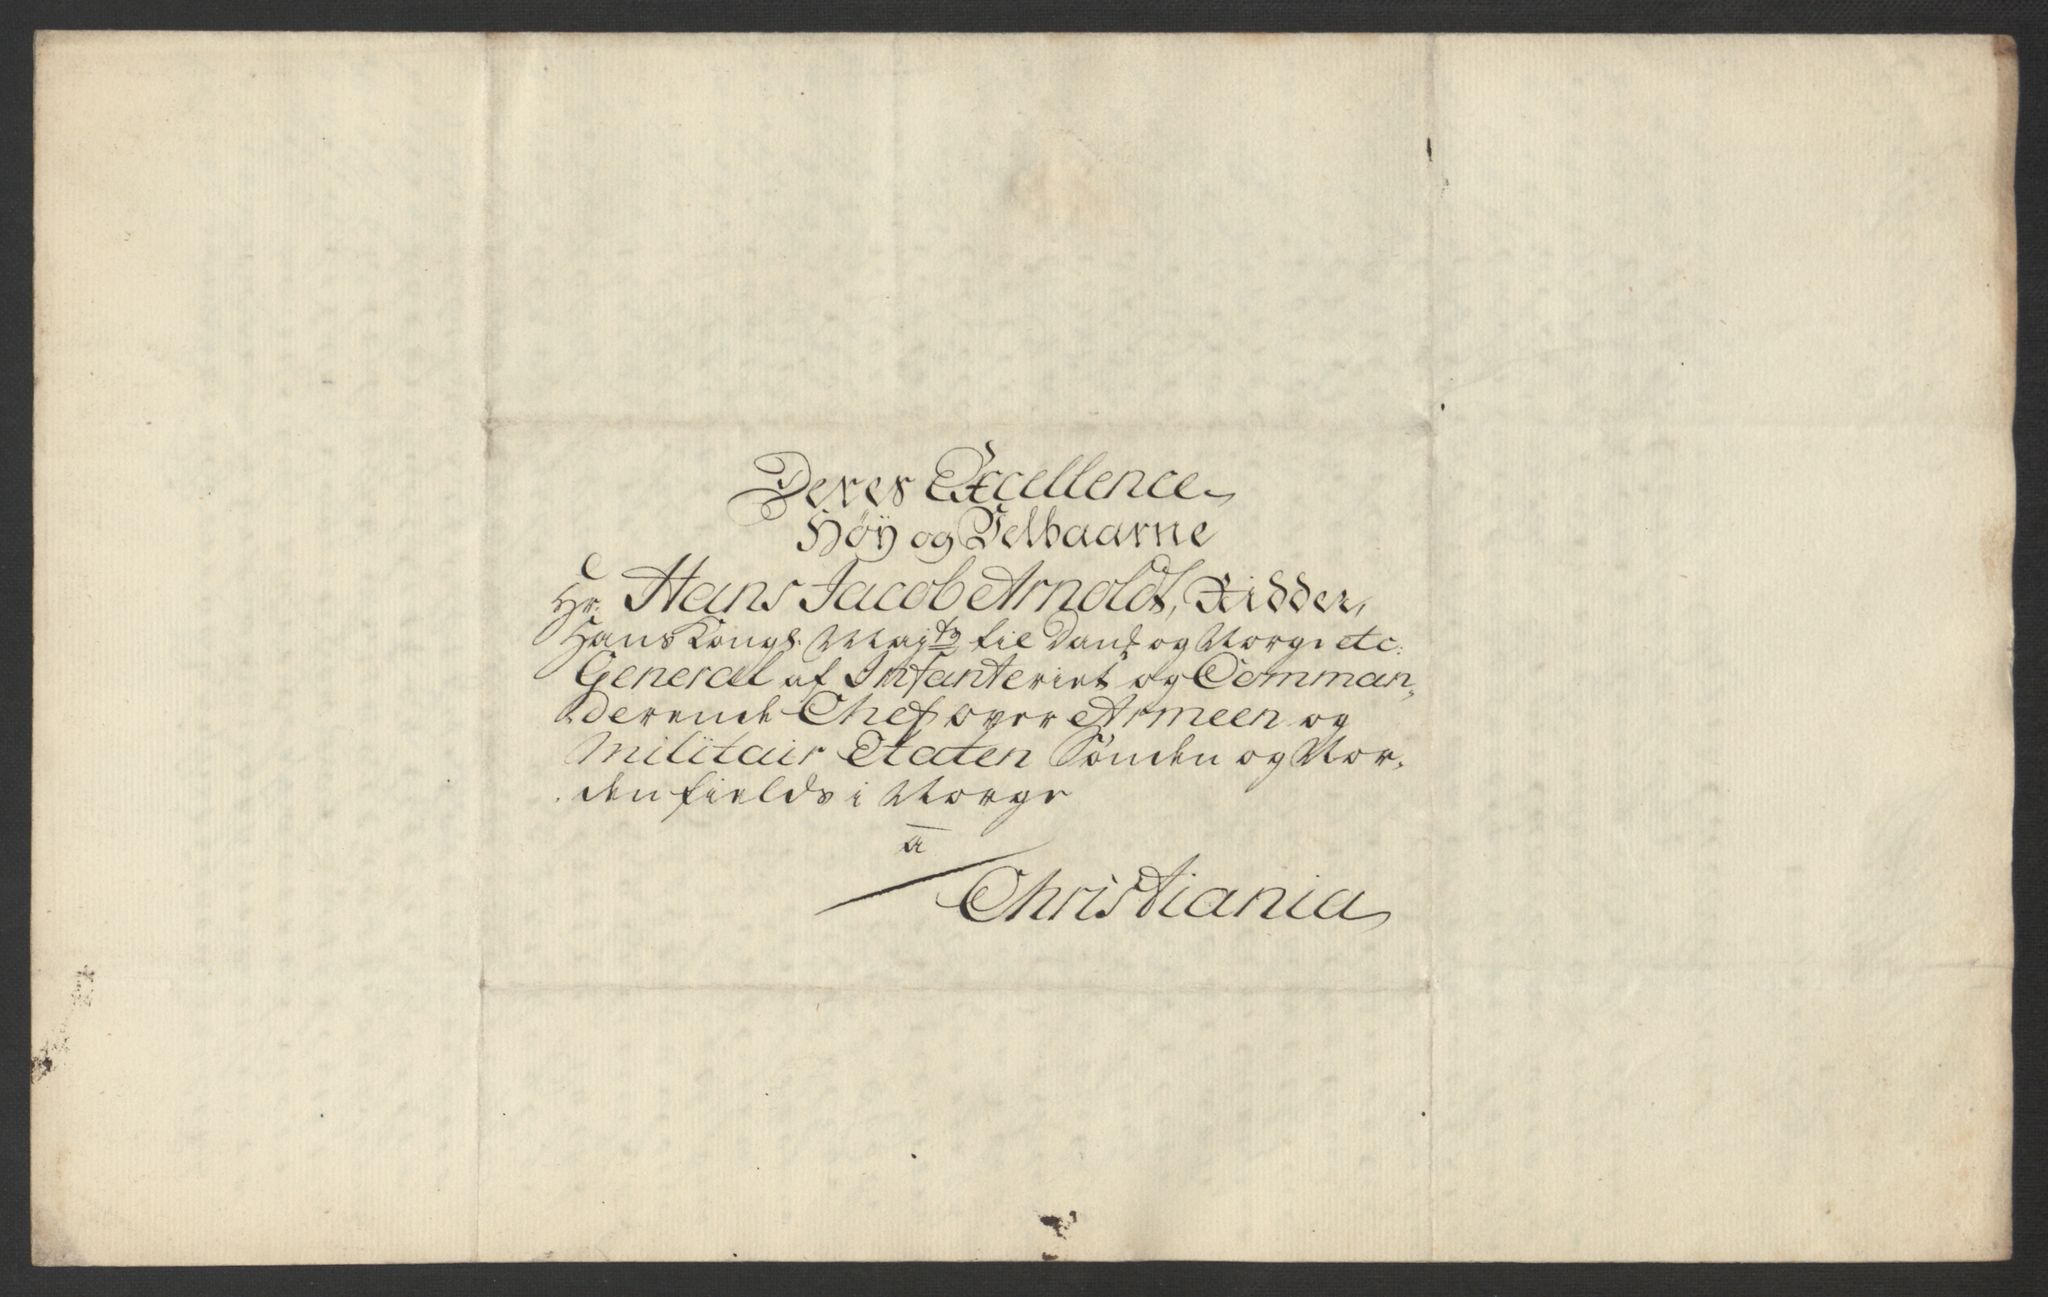 Deres Excellence
Høÿ og Velbaarne
Hr. Hans Jacob Arnoldt, Ridder,
Hans Kongl. Maytz til Dank og Norge etc:
General af Infanteriet og Comman-
derende Chef over Armeen og
Militair Etaten Sønden og Nor-
denfields i Norge
a
Christiania